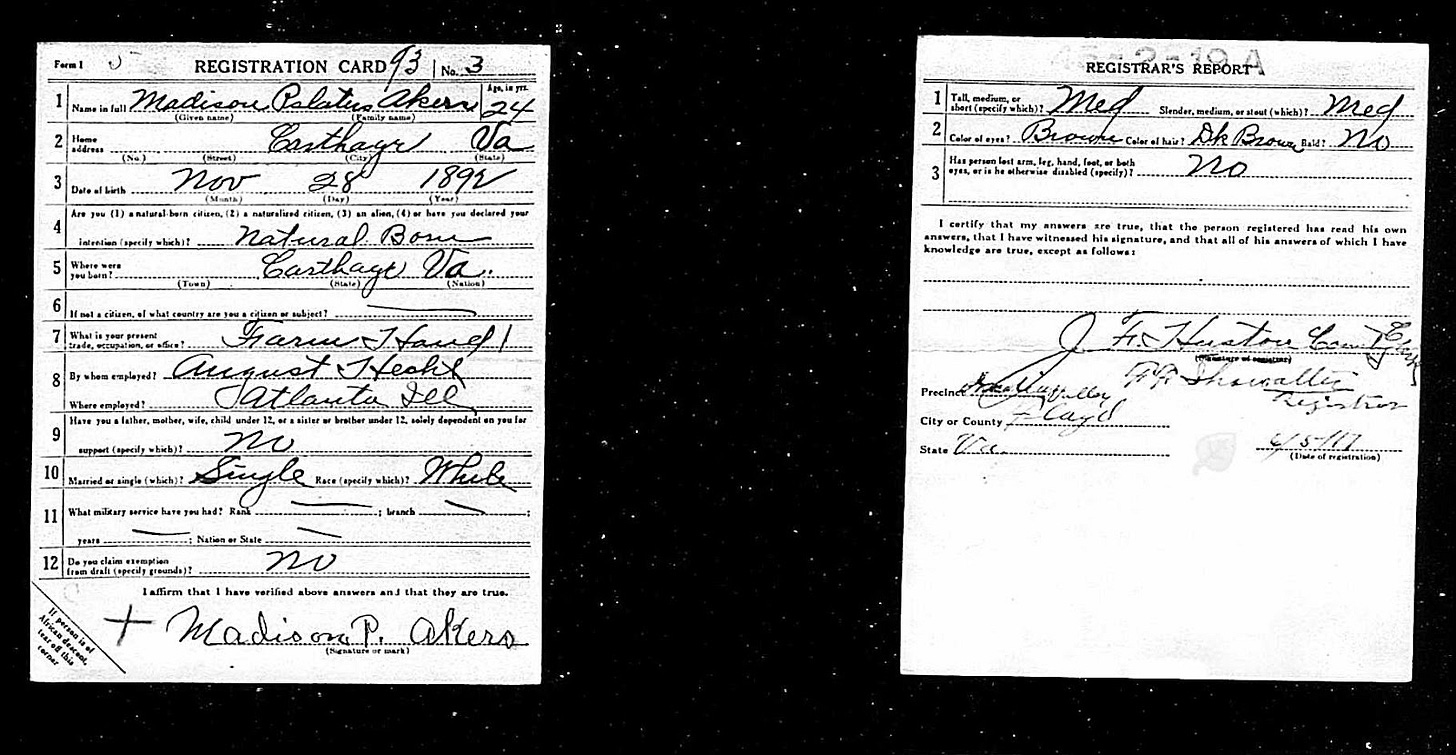 Form 1
REGISTRATION CARD 93 No. 3
1 Name in full Madison Akers Age, in yrs. 24
(Given name) (Family name)
2 Home address Va
(No.) (Street) (City) (State)
3 Date of birth Nov 28 1892
(Month) (Day) (Year)
4 Are you (1) a natural-born citizen, (2) a naturalized citizen, (3) an alien, (4) or have you declared your
intention (specify which)? Natural Born
5 Where were you born? Va.
(Town) (State) (Nation)
6 If not a citizen, of what country are you a citizen or subject?
7 What is your present trade, occupation, or office? Farm Hand
8 By whom employed? August
Where employed? Atlanta Ill
9 Have you a father, mother, wife, child under 12, or a sister or brother under 12, solely dependent on you for
support (specify which)? No
10 Married or single (which)? Single Race (specify which)? White
11 What military service have you had? Rank ; branch ;
years ; Nation or State
12 Do you claim exemption from draft (specify grounds)? No
I affirm that I have verified above answers and that they are true.
+ Madison P. Akers
(Signature or mark)
If person is of
African descent,
tear off this
corner
REGISTRAR'S REPORT
1 Tall, medium, or short (specify which)? Med Slender, medium, or stout (which)? Med
2 Color of eyes? Brown Color of hair? Dk Brown Bald? No
3 Has person lost arm, leg, hand, foot, or both eyes, or is he otherwise disabled (specify)? No
I certify that my answers are true, that the person registered has read his own
answers, that I have witnessed his signature, and that all of his answers of which I have
knowledge are true, except as follows:
J. F. Huston County Clerk
(Signature of registrar)
Precinct Valley Showalter
Registrar
City or County Floyd
State Va. 6/5/17
(Date of registration)